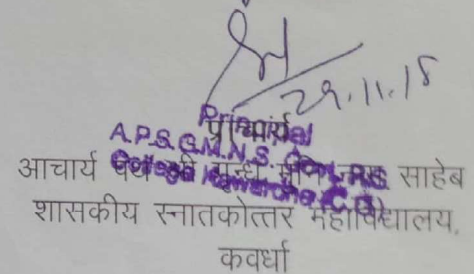 29.11.18
Principal
प्राचार्य
A.P.S.G.M.N.S. Govt. P.G.
College Kawardha (C.G.)
आचार्य पंथ श्री गृन्ध मुनि नाम साहेब
शासकीय स्नातकोत्तर महाविद्यालय,
कवर्धा